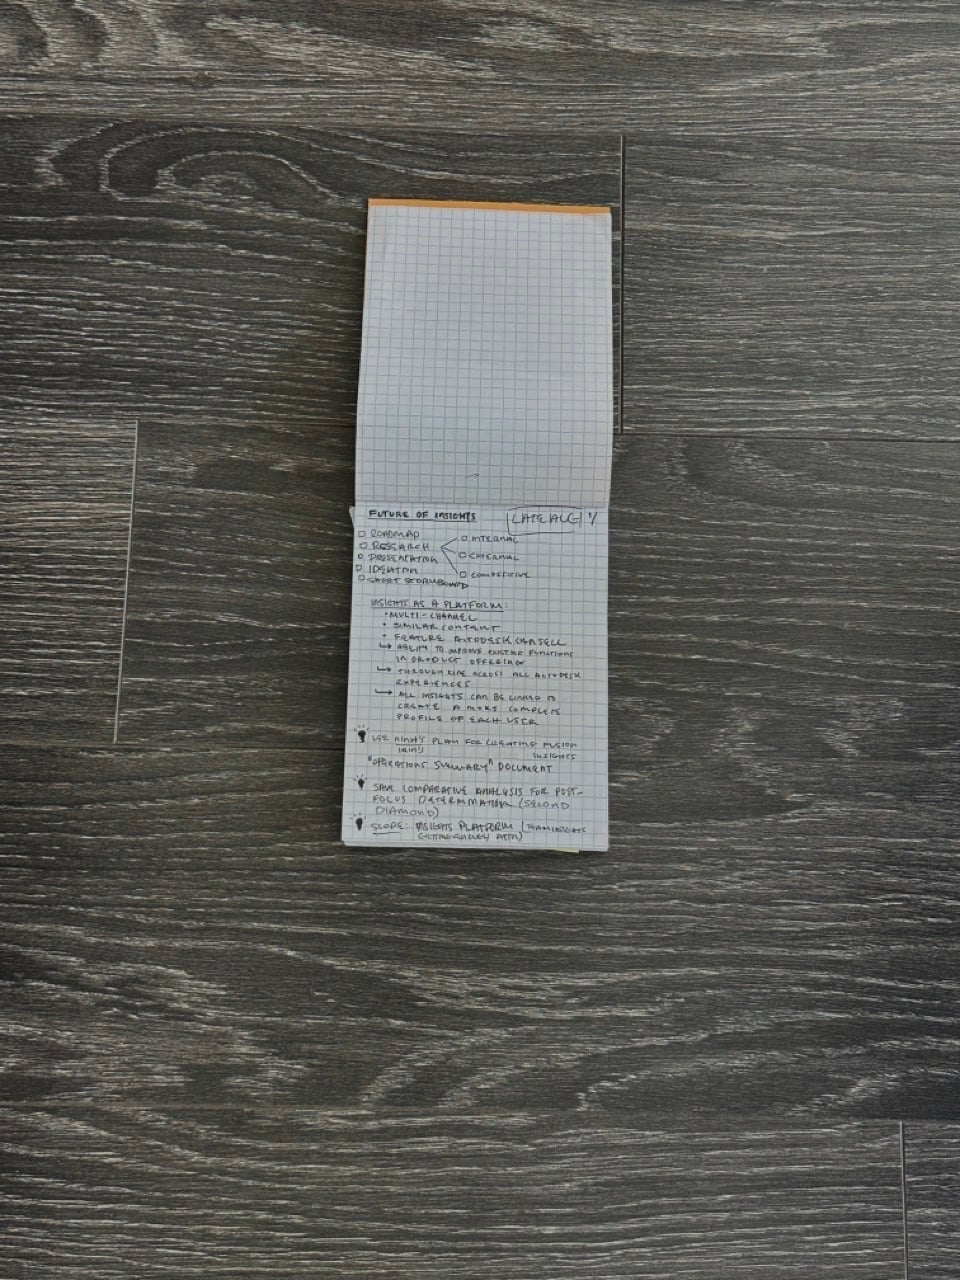 FUTURE OF INSIGHTS
LATE AUG
ROADMAP
RESEARCH
INTERNAL
EXTERNAL
COMPETITIVE
PRESENTATION
IDEATION
SHORT STORYBOARD
INSIGHTS AS A PLATFORM:
• MULTI-CHANNEL
• SIMILAR CONTENT
• FEATURE AUTODESK
↳ ABILITY TO IMPROVE EXISTING FUNCTIONS
IN PRODUCT OFFERING
↳ THROUGH LINE ACROSS ALL AUTODESK
EXPERIENCES
↳ ALL INSIGHTS CAN BE LINKED TO
CREATE A MORE COMPLETE
PROFILE OF EACH USER
USE PLAN FOR CREATING FUSION
INSIGHTS
"OPERATIONS SUMMARY" DOCUMENT
SAVE COMPARATIVE ANALYSIS FOR POST-
FOCUS DETERMINATION (SECOND
DIAMOND)
SCOPE: INSIGHTS PLATFORM